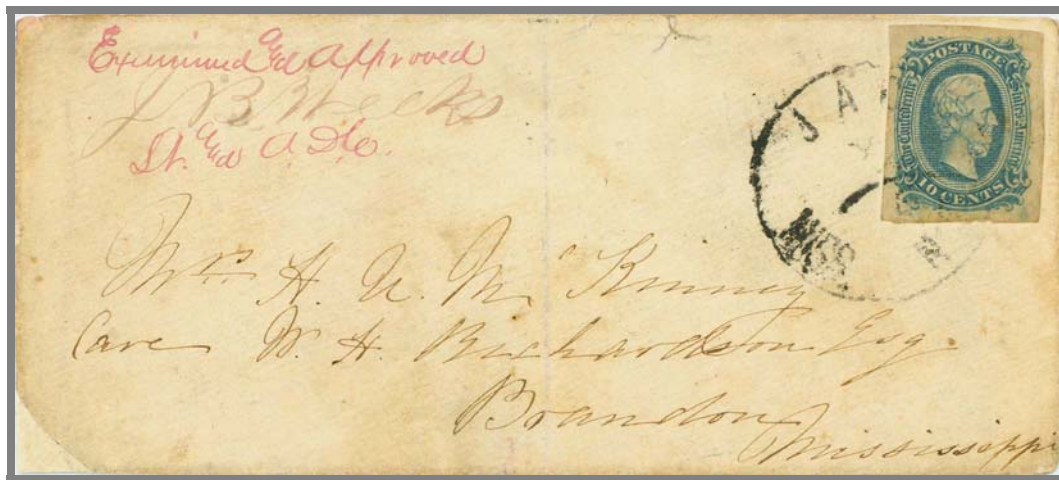 Examined and Approved
J B Weeks
Lt. and A D C.
POSTAGE
The Confederate States of America
10 CENTS
JA
MISS
Mrs H. N. Mc Kinney
Care W. H. Richardson Esq
Brandon
Mississippi